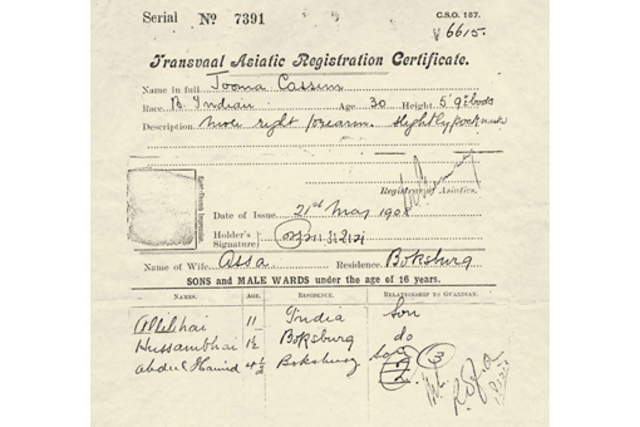 Serial No 7391
C.S.O. 187.
6615.
Transvaal Asiatic Registration Certificate.
Name in full Jooma Cassim
Race B. Indian Age 30 Height 5' 9"
Description Mole right forearm. Slightly pock
Registrar of Asiatics.
Date of Issue 21st May 190
Holder's Signature
Name of Wife Assa Residence Boksburg
SONS and MALE WARDS under the age of 16 years.
NAMES. AGE. RESIDENCE. RELATIONSHIP TO GUARDIAN.
11 India Son
Hussambhai 1½ Boksburg do
Abdul Hamid 4½ Boksburg Son
3
2